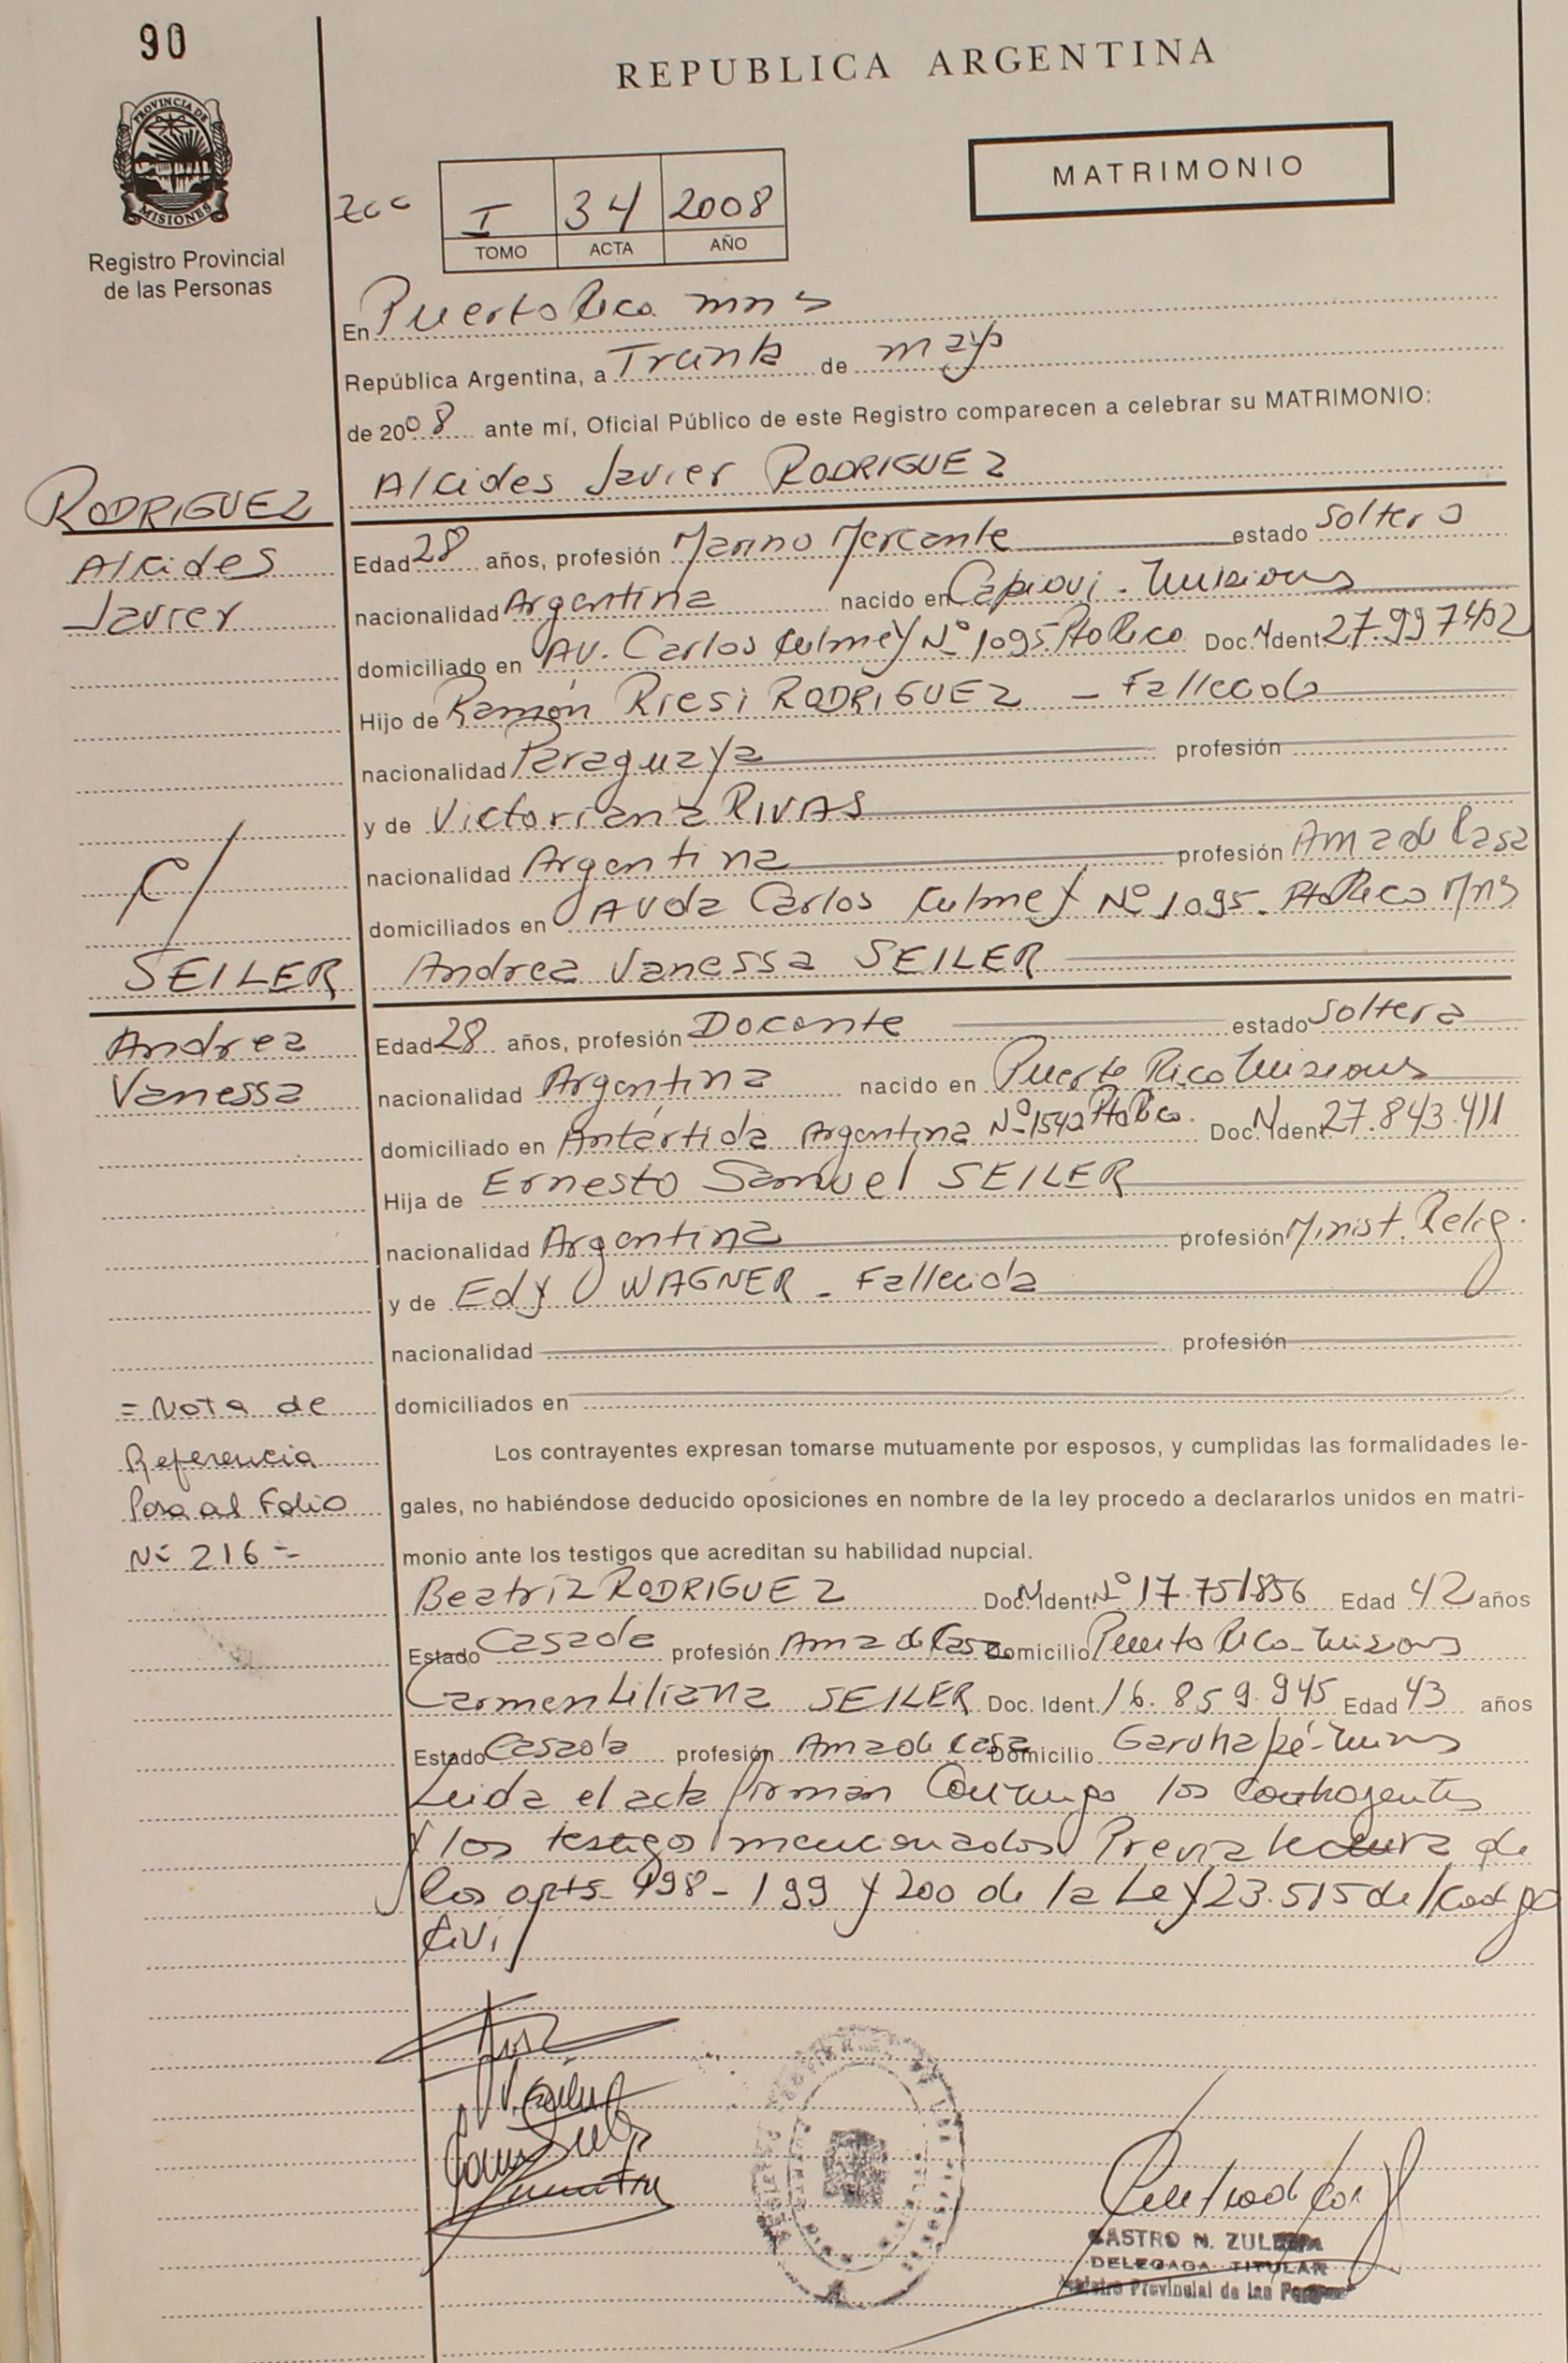 90
REPUBLICA ARGENTINA
PROVINCIA DE
MISIONES
Registro Provincial
de las Personas
I 34 2008
TOMO ACTA AÑO
MATRIMONIO
En Puerto Rico mns
República Argentina, a Treinta de mayo
de 2008 ante mí, Oficial Público de este Registro comparecen a celebrar su MATRIMONIO:
Alcides Javier RODRIGUEZ
RODRIGUEZ
Alcides
Javier
Edad 28 años, profesión Marino Mercante estado Soltero
nacionalidad Argentina nacido en Capiovi - Misiones
domiciliado en AV. Carlos Culmey Nº 1095 Pto Rico Doc. N Ident. 27.997402
Hijo de Ramón Riesi RODRIGUEZ - Fallecido
nacionalidad Paraguaya profesión
y de Victoriana RIVAS
nacionalidad Argentina profesión Ama de Casa
domiciliados en Avda Carlos Culmey Nº 1095. Pto Rico Mns
C/
SEILER
Andrea
Vanessa
Andrea Vanessa SEILER
Edad 28 años, profesión Docente estado Soltera
nacionalidad Argentina nacido en Puerto Rico Misiones
domiciliado en Antártida Argentina Nº 1542 Pto Rico. Doc. N Ident. 27.843.411
Hija de Ernesto Samuel SEILER
nacionalidad Argentina profesión Minist. Relig.
y de Edy WAGNER - Fallecida
nacionalidad profesión
domiciliados en
= Nota de
Referencia
Pasa al Folio
Nº 216 =
Los contrayentes expresan tomarse mutuamente por esposos, y cumplidas las formalidades le-
gales, no habiéndose deducido oposiciones en nombre de la ley procedo a declararlos unidos en matri-
monio ante los testigos que acreditan su habilidad nupcial.
Beatriz RODRIGUEZ Doc. N Ident. Nº 17.751856 Edad 42 años
Estado Casada profesión Ama de Casa Domicilio Puerto Rico - Misiones
Carmen Liliana SEILER Doc. Ident. 16.859.945 Edad 43 años
Estado Casada profesión Ama de Casa Domicilio Garuhapé - Mnes
Leida el acta firman Conmigo los Contrayentes
y los testigos mencionados Previa lectura de
los arts - 198 - 199 y 200 de la Ley 23.515 del Codigo
Civil
CASTRO N. ZULEMA
DELEGADA TITULAR
Registro Provincial de las Personas